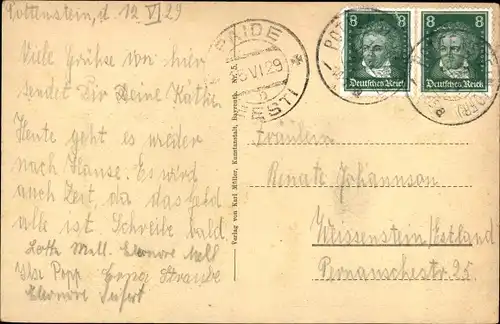 Pottenstein, d. 12 VI 29
Viele Grüße von hier
sendet Dir Deine Käthe.
Heute geht es wieder
nach Hause. Es wird
auch Zeit, da das Geld
alle ist. Schreibe bald.
Loth. Mell. Eleonore Mell
Ilse Popp Erna Straube
Eleonore Seifert
PAIDE
VI 29
EESTI
Verlag von Karl Müller, Kunstanstalt, Bayreuth. Nr. 5.
8 8
Deutsches Reich
8 8
Deutsches Reich
Fräulein
Renate Johannson
Weissenstein/Estland
Pernauschestr. 25